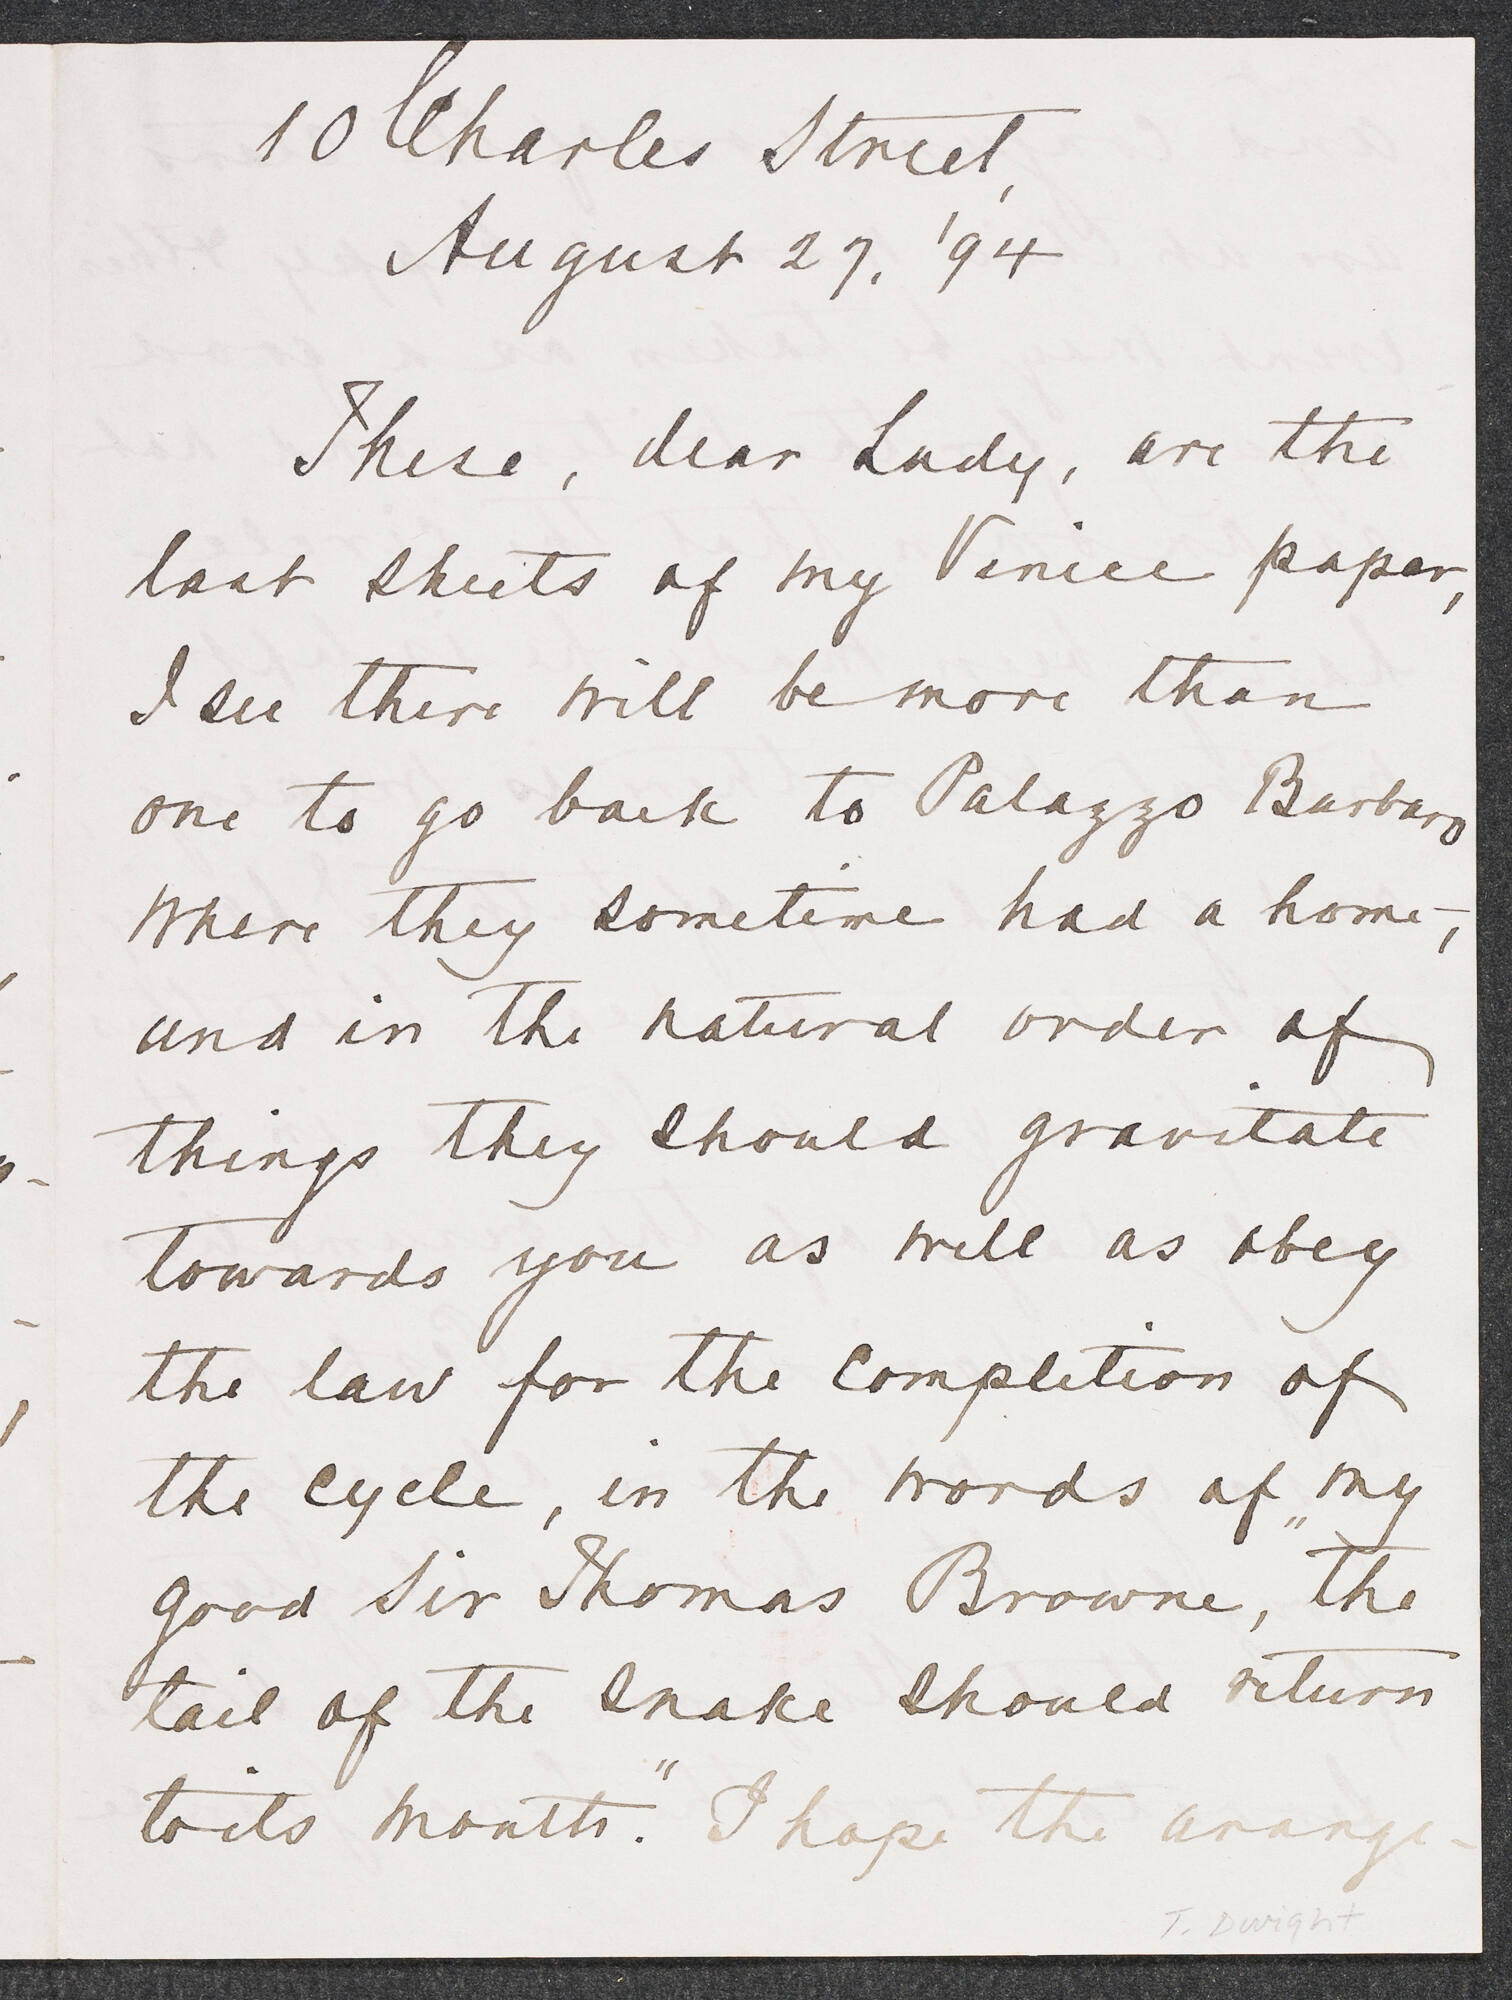 10 Charles Street,
August 27, '94
These, dear Lady, are the
last sheets of my Venice paper,
I see there will be more than
one to go back to Palazzo Barbaro
where they sometime had a home,
and in the natural order of
things they should gravitate
towards you as well as obey
the law for the completion of
the cycle, in the words of my
good Sir Thomas Browne, "the
tail of the snake should return
to its mouth." I hope the arange-
T. Dwight